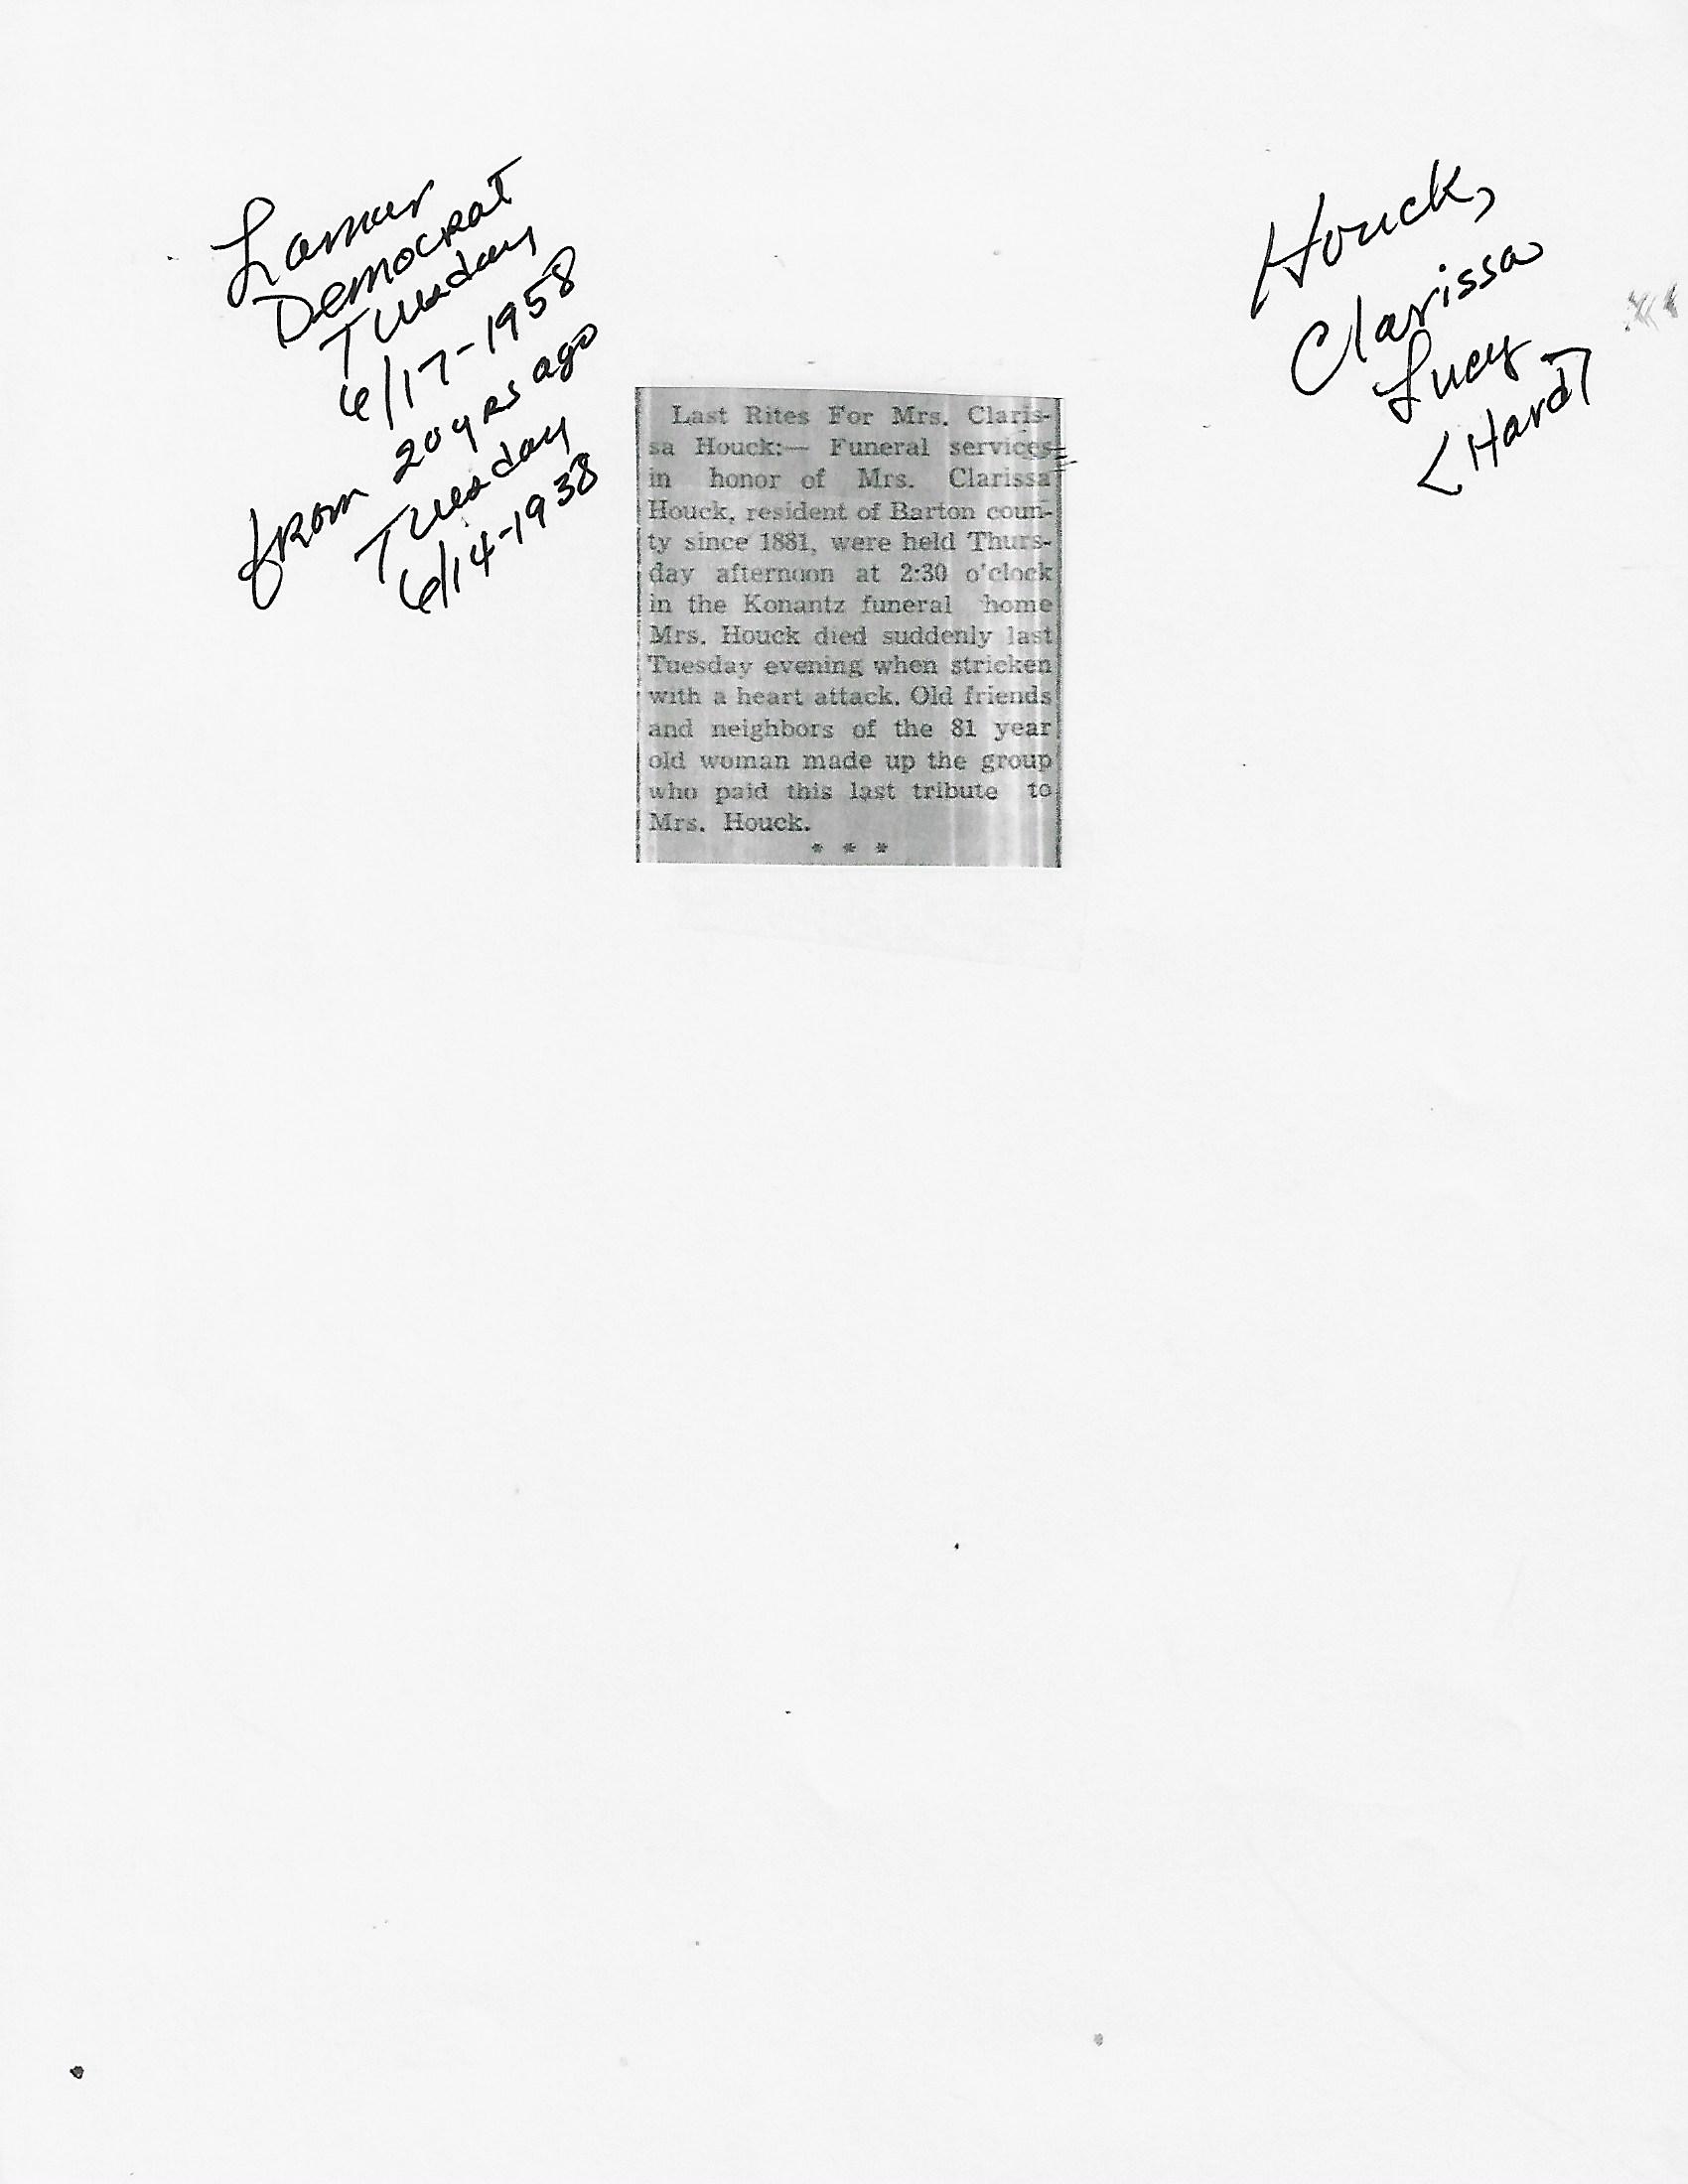 Lamar
Democrat
Tuesday
6/17-1958
from 20 yrs ago
Tuesday
6/14-1938
Houck,
Clarissa
Lucy
<Hard>
Last Rites For Mrs. Claris-
sa Houck:— Funeral services
in honor of Mrs. Clarissa
Houck, resident of Barton coun-
ty since 1881, were held Thurs-
day afternoon at 2:30 o'clock
in the Konantz funeral home
Mrs. Houck died suddenly last
Tuesday evening when stricken
with a heart attack. Old friends
and neighbors of the 81 year
old woman made up the group
who paid this last tribute to
Mrs. Houck.
* * *